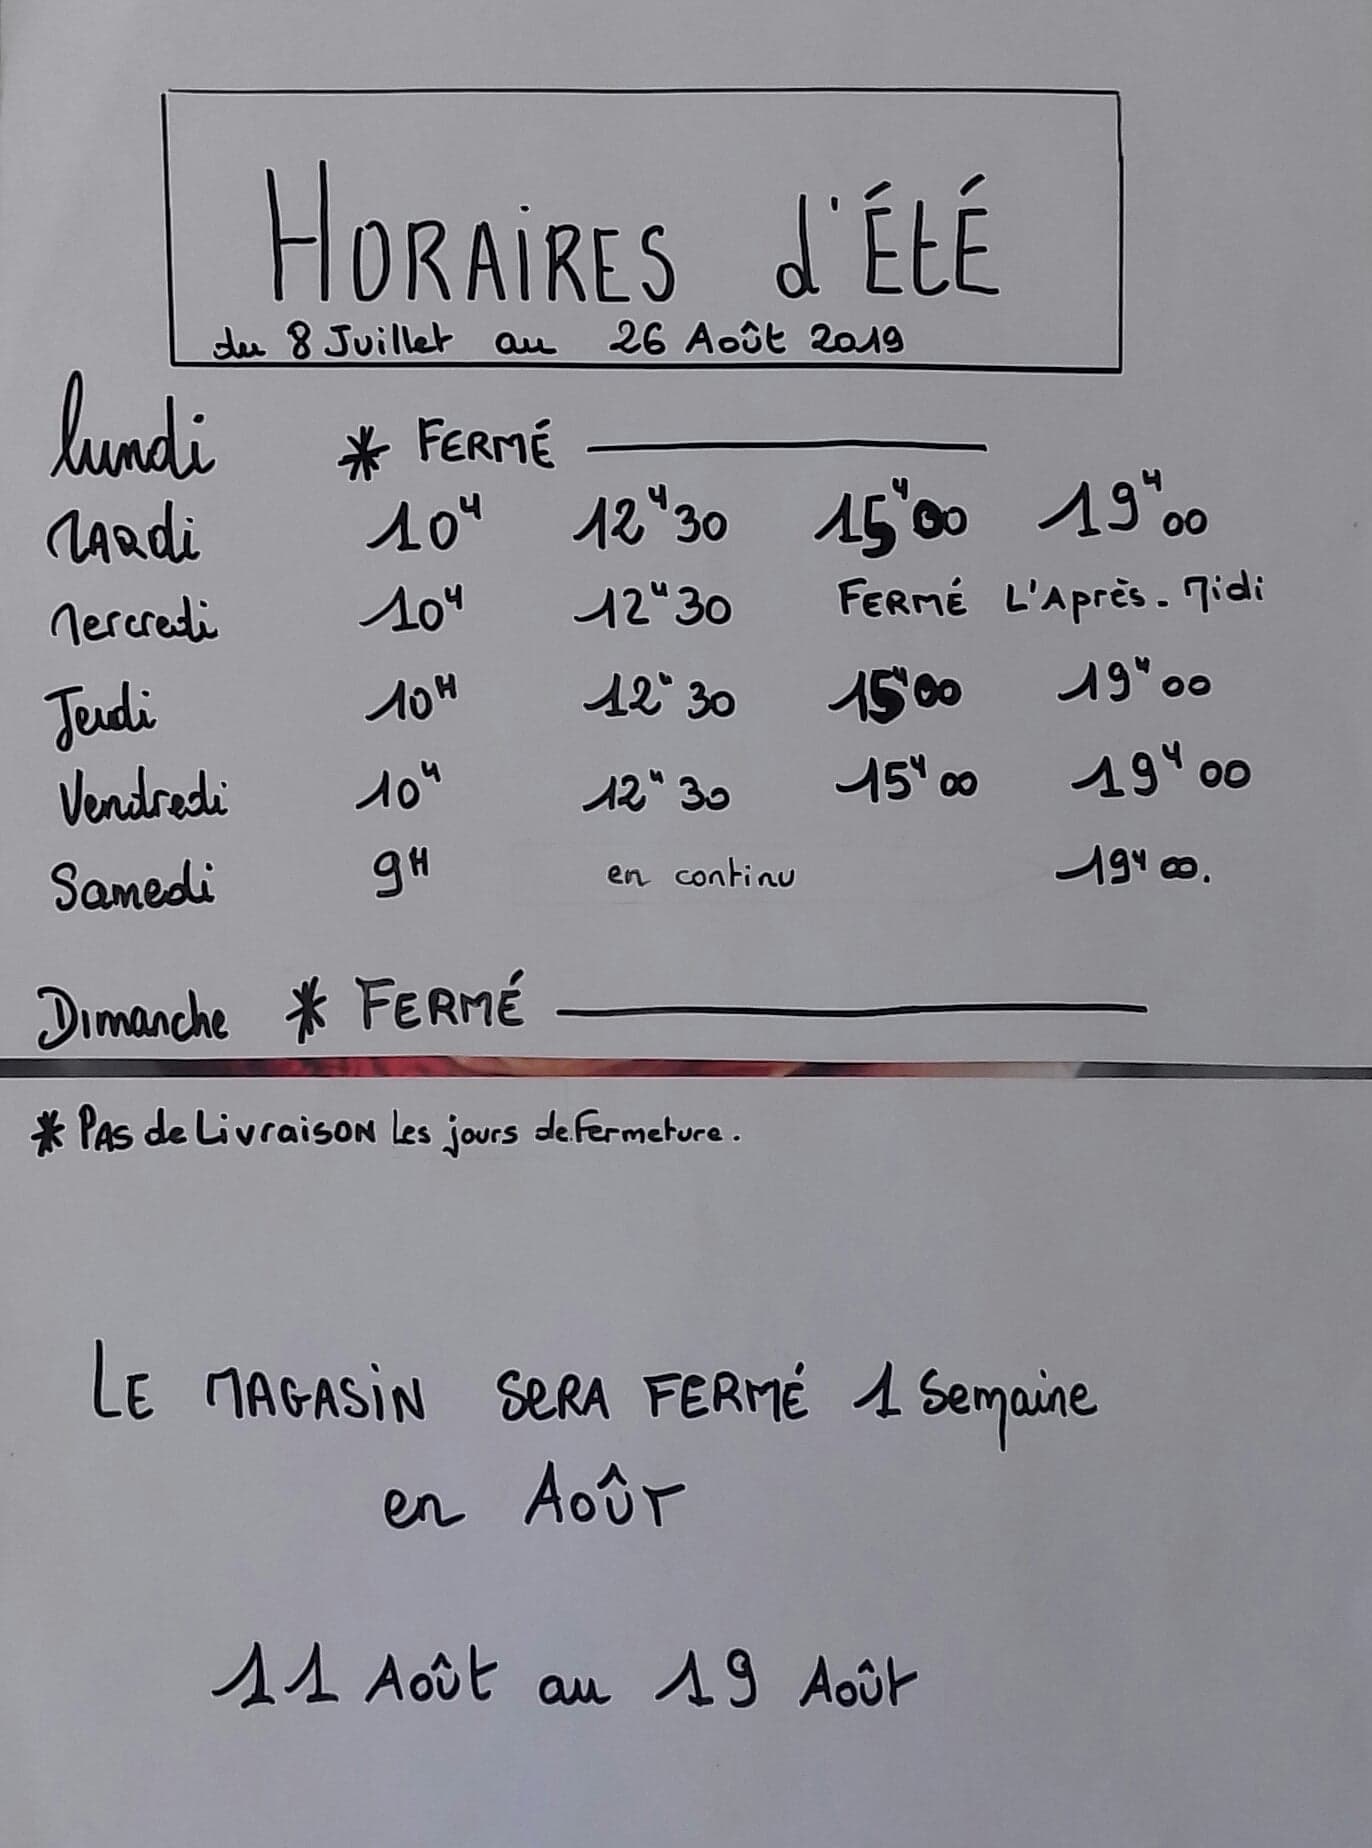 HORAIRES d'ÉtÉ
du 8 Juillet au 26 Août 2019
lundi * FERMÉ
MARdi 10H 12H30 15H00 19H00
Mercredi 10H 12H30 FERMÉ L'Après-Midi
Jeudi 10H 12H30 15H00 19H00
Vendredi 10H 12H30 15H00 19H00
Samedi 9H en continu 19H00.
Dimanche * FERMÉ
* PAS de LivraisoN Les jours de Fermeture.
LE MAGASiN SeRA FERMÉ 1 Semaine
en Août
11 Août au 19 Août